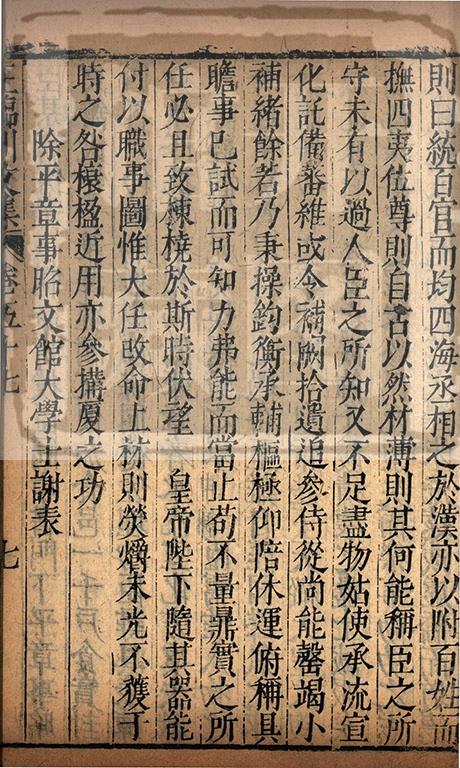 則曰統百官而均四海丞相之於漢亦以附百姓而
撫四夷位尊則自古以然材薄則其何能稱臣之所
守未有以過人臣之所知又不足盡物姑使承流宣
化託備蕃維或令補闕拾遺追參侍從尚能罄竭小
補緒餘者乃秉操鈞衡承輔樞極仰陪休運俯稱具
瞻事已試而可知力弗能而當止苟不量鼎實之所
任必且致棟橈於斯時伏望 皇帝陛下隨其器能
付以職事圖惟大任改命上材則熒爝末光不獲于
時之咎榱桷近用亦參搆厦之功
除平章事昭文館大學士謝表
王臨川文集 卷五十七 七